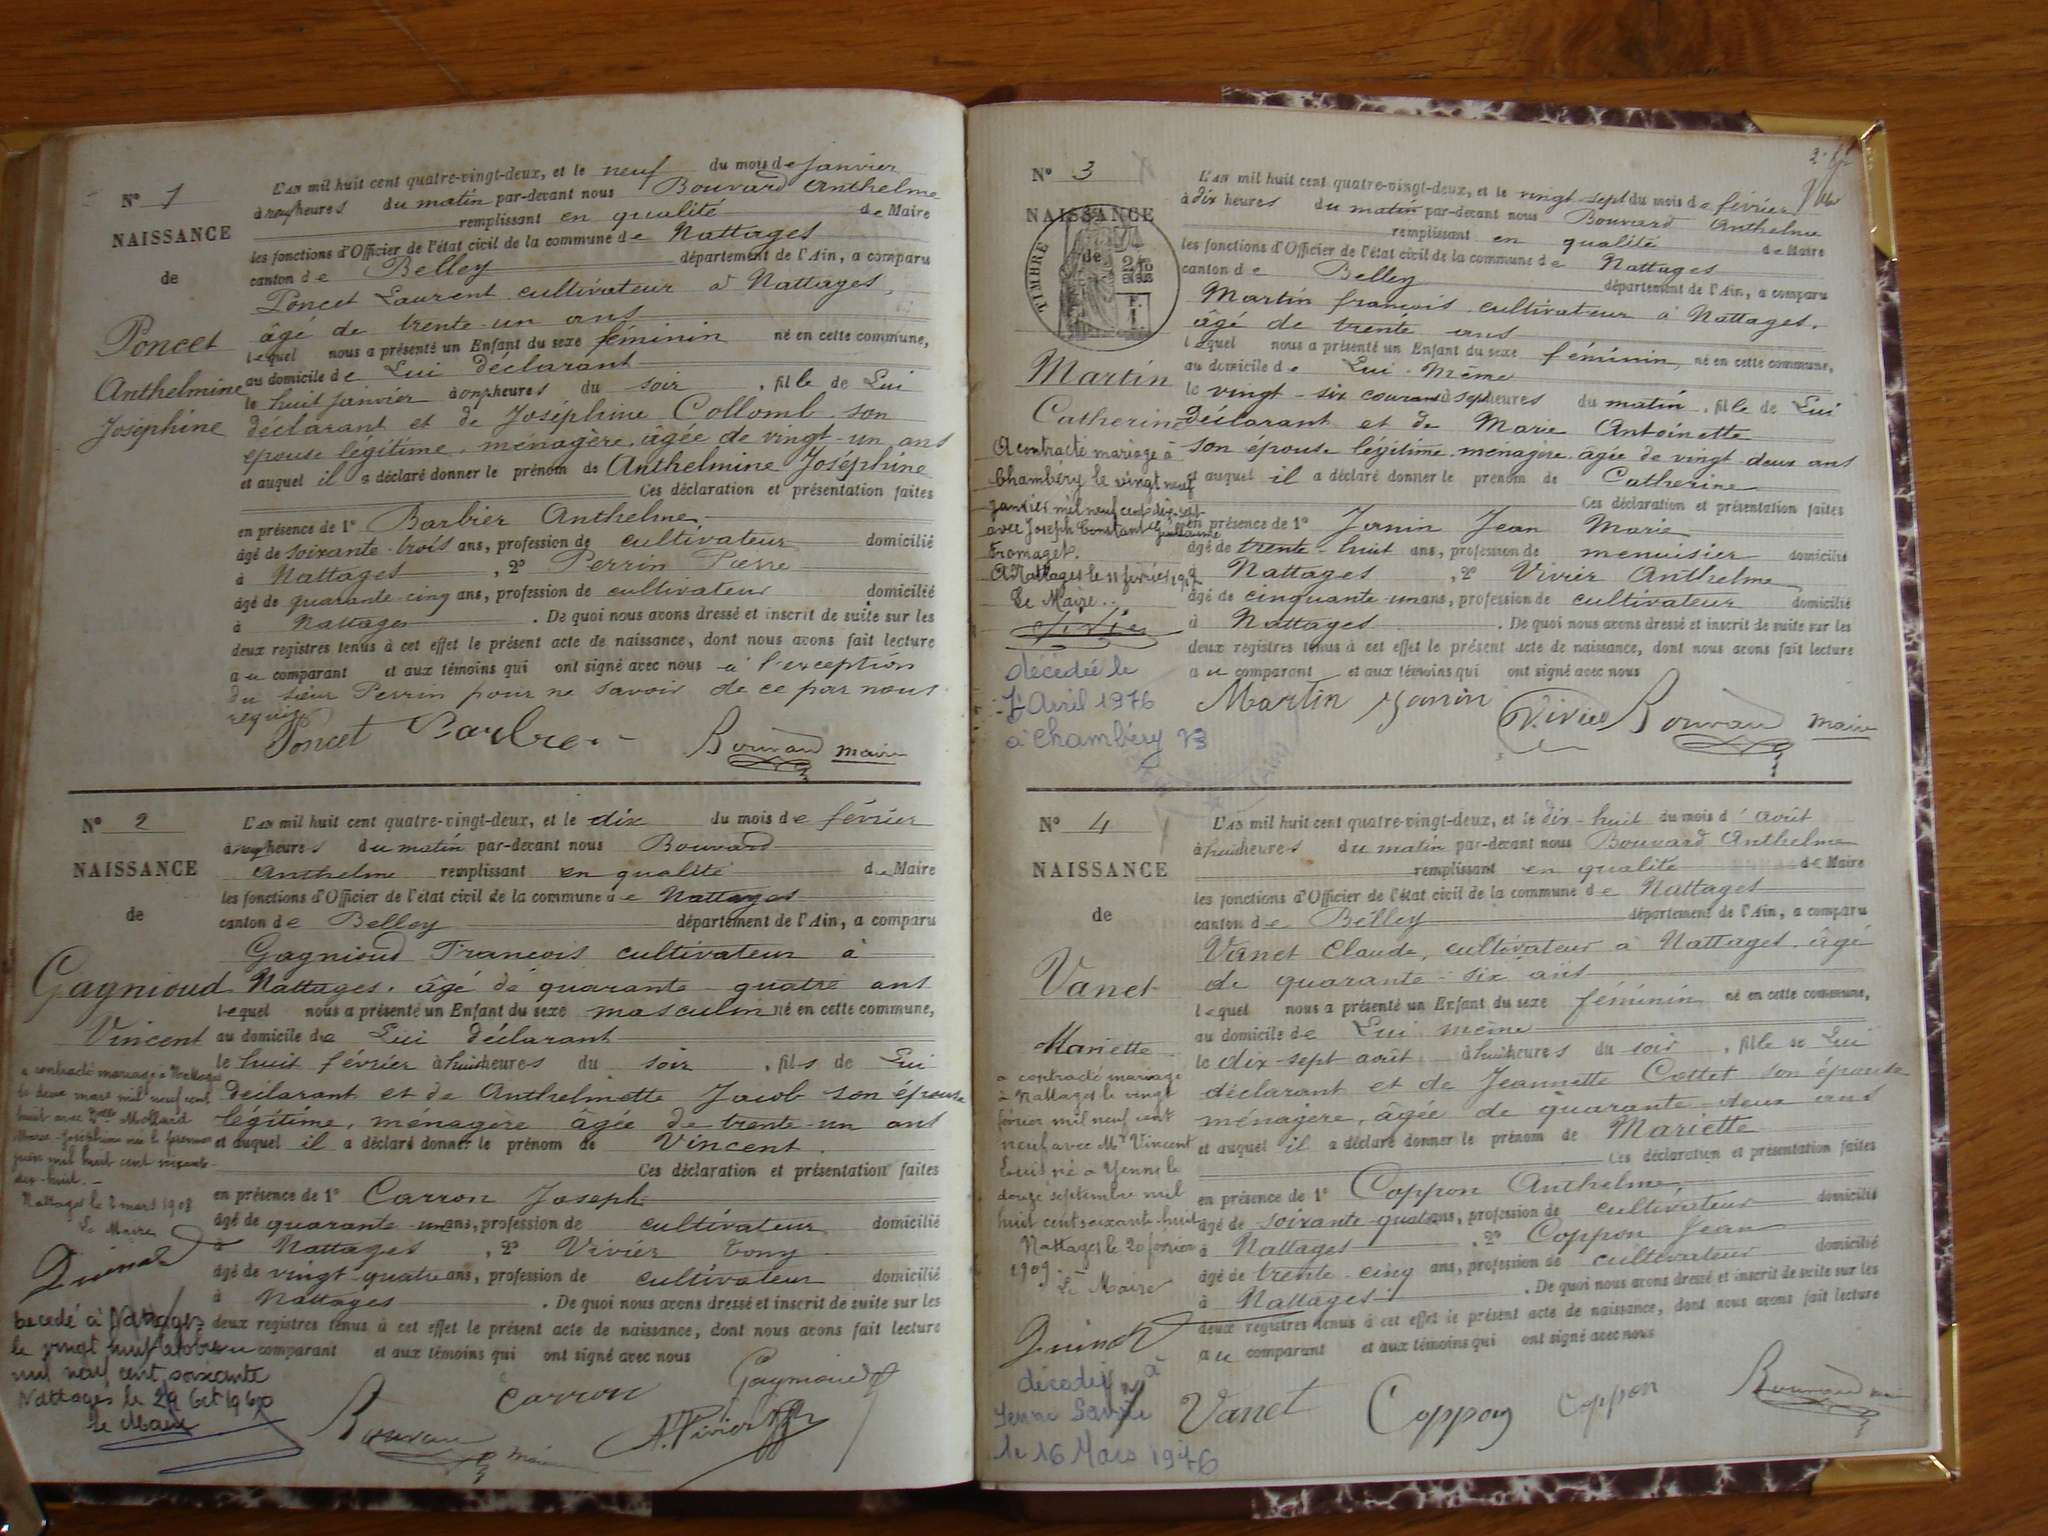 N° 1
NAISSANCE
de
Poncet
Anthelmine
Joséphine
L'AN mil huit cent quatre-vingt-deux, et le neuf du mois de Janvier
à neuf heures du matin par-devant nous Bouvard Anthelme
remplissant en qualité de Maire
les fonctions d'Officier de l'état civil de la commune de Nattages
canton de Belley département de l'Ain, a comparu
Poncet Laurent cultivateur à Nattages,
âgé de trente-un ans
lequel nous a présenté un Enfant du sexe féminin né en cette commune,
au domicile de Lui déclarant
le huit janvier à onze heures du soir, fille de Lui
déclarant et de Joséphine Collomb son
épouse légitime, ménagère, âgée de vingt-un ans
et auquel il a déclaré donner le prénom de Anthelmine Joséphine
Ces déclaration et présentation faites
en présence de 1° Barbier Anthelme
âgé de soixante-trois ans, profession de cultivateur domicilié
à Nattages, 2° Perrin Pierre
âgé de quarante-cinq ans, profession de cultivateur domicilié
à Nattages. De quoi nous avons dressé et inscrit de suite sur les
deux registres tenus à cet effet le présent acte de naissance, dont nous avons fait lecture
au comparant et aux témoins qui ont signé avec nous à l'exception
du sieur Perrin pour ne savoir de ce par nous
requis
Poncet Barbier Bouvard maire
N° 2
NAISSANCE
de
Gagnioud
Vincent
a contracté mariage à Nattages
le deux mars mil neuf cent
huit avec Dlle Mollard
Marie-Joséphine née le premier
juin mil huit cent soixante-
dix-huit. –
Nattages le 2 mars 1908
Le Maire
Décédé à Nattages
le vingt huit octobre
mil neuf cent soixante
Nattages le 29 Oct 1960
Le Maire
L'AN mil huit cent quatre-vingt-deux, et le dix du mois de février
à neuf heures du matin par-devant nous Bouvard
Anthelme remplissant en qualité de Maire
les fonctions d'Officier de l'état civil de la commune de Nattages
canton de Belley département de l'Ain, a comparu
Gagnioud François cultivateur à
Nattages, âgé de quarante-quatre ans
lequel nous a présenté un Enfant du sexe masculin né en cette commune,
au domicile de Lui déclarant
le huit février à huit heures du soir, fils de Lui
déclarant et de Anthelmette Jacob son épouse
légitime, ménagère âgée de trente-un ans
et auquel il a déclaré donner le prénom de Vincent.
Ces déclaration et présentation faites
en présence de 1° Carron Joseph
âgé de quarante-un ans, profession de cultivateur domicilié
à Nattages, 2° Vivier Tony
âgé de vingt-quatre ans, profession de cultivateur domicilié
à Nattages. De quoi nous avons dressé et inscrit de suite sur les
deux registres tenus à cet effet le présent acte de naissance, dont nous avons fait lecture
au comparant et aux témoins qui ont signé avec nous
Carron Gagnioud
Bouvard maire A. Vivier
N° 3
NAISSANCE
de
TIMBRE
Martin
Catherine
A contracté mariage à
Chambéry le vingt neuf
janvier mil neuf cent dix-sept
avec Joseph Constant Guillaume
Fromaget.
A Nattages le 11 février 1917
Le Maire.
Vivier
décédée le
Avril 1976
à Chambéry 73
L'AN mil huit cent quatre-vingt-deux, et le vingt-sept du mois de février
à dix heures du matin par-devant nous Bouvard Anthelme
remplissant en qualité de Maire
les fonctions d'Officier de l'état civil de la commune de Nattages
canton de Belley département de l'Ain, a comparu
Martin françois, cultivateur à Nattages,
âgé de trente ans
lequel nous a présenté un Enfant du sexe féminin, né en cette commune,
au domicile de Lui-Même
le vingt-six courant à sept heures du matin, fille de Lui
déclarant et de Marie Antoinette
son épouse légitime ménagère âgée de vingt-deux ans
et auquel il a déclaré donner le prénom de Catherine
Ces déclaration et présentation faites
en présence de 1° Janin Jean Marie
âgé de trente-huit ans, profession de menuisier domicilié
à Nattages, 2° Vivier Anthelme
âgé de cinquante-un ans, profession de cultivateur domicilié
à Nattages. De quoi nous avons dressé et inscrit de suite sur les
deux registres tenus à cet effet le présent acte de naissance, dont nous avons fait lecture
au comparant et aux témoins qui ont signé avec nous
Martin Janin Vivier Bouvard maire
N° 4
NAISSANCE
de
Vanet
Mariette
a contracté mariage
à Nattages le vingt
février mil neuf cent
neuf avec Mr Vincent
Louis né à Yenne le
douze septembre mil
huit cent soixante-huit
Nattages le 20 février
1909
Le Maire
décédée à
Yenne Savoie
le 16 Mars 1976
L'AN mil huit cent quatre-vingt-deux, et le dix-huit du mois d'Août
à huit heures du matin par-devant nous Bouvard Anthelme
remplissant en qualité de Maire
les fonctions d'Officier de l'état civil de la commune de Nattages
canton de Belley département de l'Ain, a comparu
Vanet Claude, cultivateur à Nattages, âgé
de quarante-six ans
lequel nous a présenté un Enfant du sexe féminin né en cette commune,
au domicile de Lui même
le dix sept août à huit heures du soir, fille de Lui
déclarant et de Jeannette Cottet son épouse
ménagère, âgée de quarante-deux ans
et auquel il a déclaré donner le prénom de Mariette
Ces déclaration et présentation faites
en présence de 1° Coppon Anthelme,
âgé de soixante-quatre ans, profession de cultivateur domicilié
à Nattages, 2° Coppon Jean
âgé de trente-cinq ans, profession de cultivateur domicilié
à Nattages. De quoi nous avons dressé et inscrit de suite sur les
deux registres tenus à cet effet le présent acte de naissance, dont nous avons fait lecture
au comparant et aux témoins qui ont signé avec nous
Vanet Coppon Coppon Bouvard maire